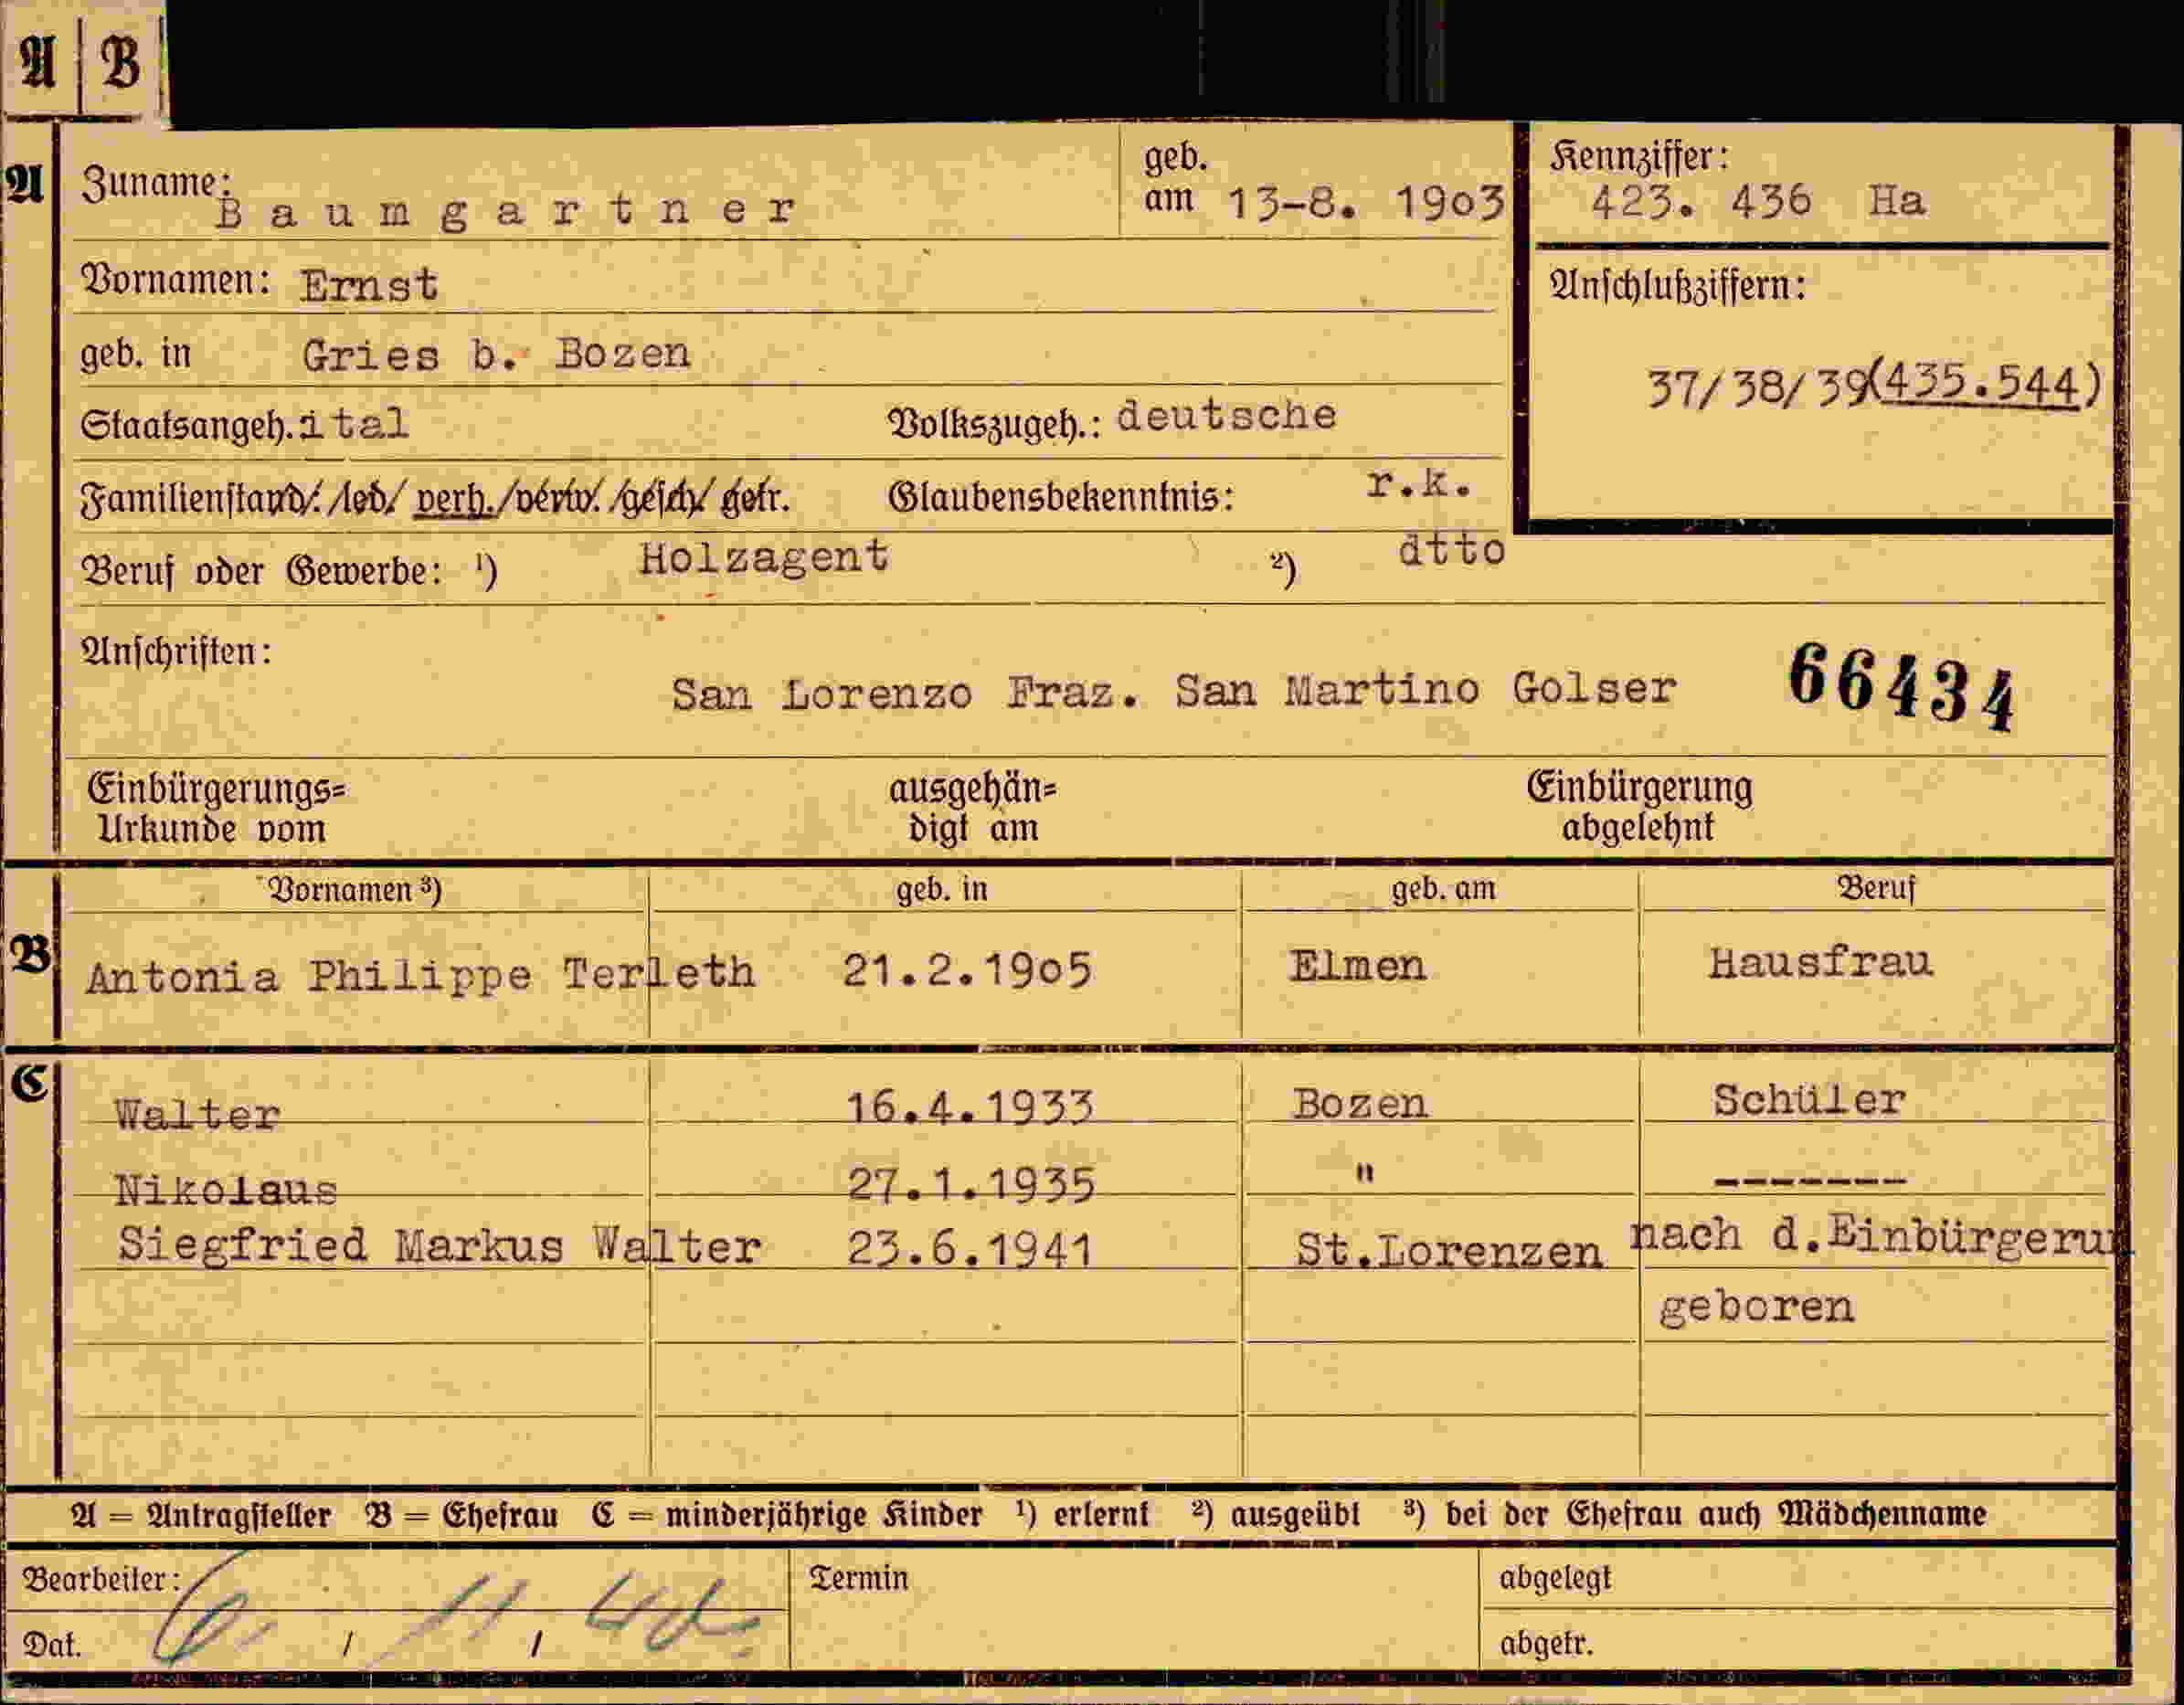 A B
A Zuname: Baumgartner geb. am 13-8. 1903 Kennziffer: 423. 436 Ha
Vornamen: Ernst
Anschlußziffern:
geb. in Gries b. Bozen
37/38/39(435.544)
Staatsangeh. ital Volkszugeh.: deutsche
Familienstand: /led/ verh. /verw. /gesch/ getr. Glaubensbekenntnis: r.k.
Beruf oder Gewerbe: ¹) Holzagent ²) dtto
Anschriften:
San Lorenzo Fraz. San Martino Golser 66434
Einbürgerungs= ausgehän= Einbürgerung
Urkunde vom digt am abgelehnt
Vornamen ³) geb. in geb. am Beruf
B Antonia Philippe Terleth 21.2.1905 Elmen Hausfrau
C
Walter 16.4.1933 Bozen Schüler
Nikolaus 27.1.1935 " -------
Siegfried Markus Walter 23.6.1941 St.Lorenzen nach d.Einbürgerun
geboren
A = Antragsteller B = Ehefrau C = minderjährige Kinder ¹) erlernt ²) ausgeübt ³) bei der Ehefrau auch Mädchenname
Bearbeiter: Termin abgelegt
Dat. / / abgetr.